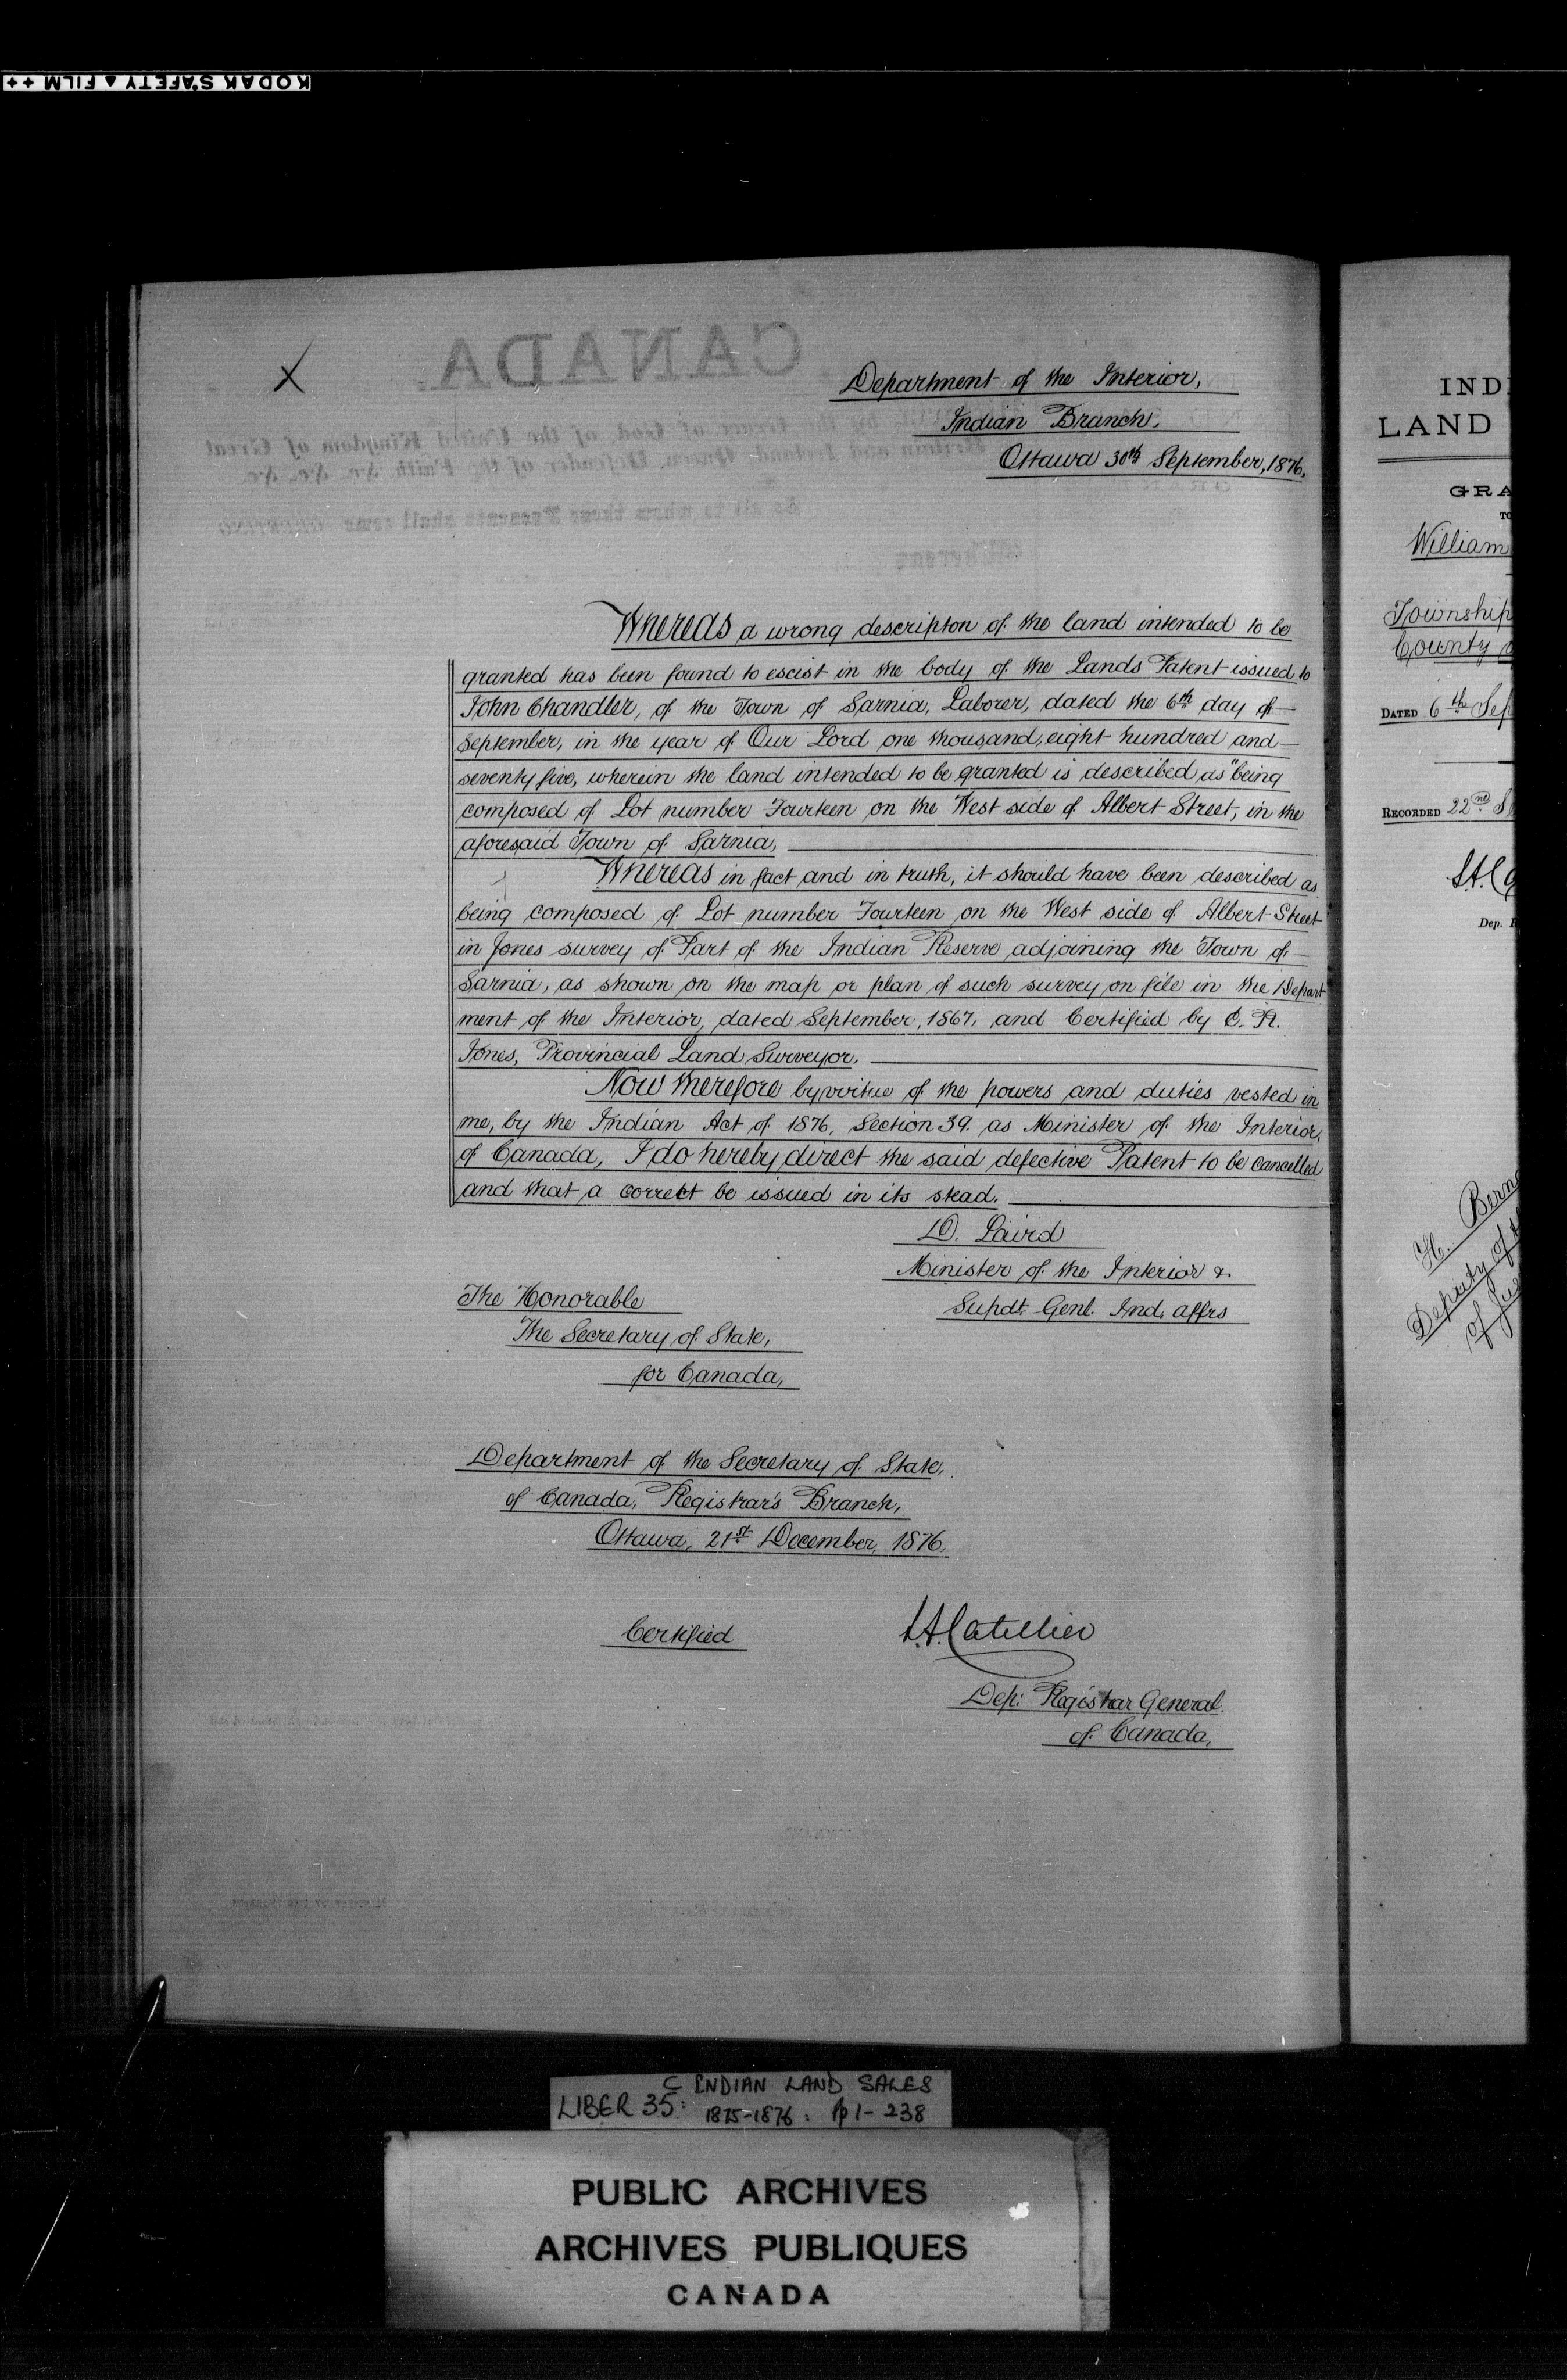 KODAK SAFETY ▲ FILM ++
X
CANADA.
Department of the Interior,
Indian Branch,
Ottawa 30th September, 1876.
Whereas a wrong description of the land intended to be
granted has been found to escist in the body of the Lands Patent issued to
John Chandler, of the Town of Sarnia, Laborer, dated the 6th day of
September, in the year of Our Lord one thousand, eight hundred and
seventy five, wherein the land intended to be granted is described as "being
composed of Lot number Fourteen on the West side of Albert Street, in the
aforesaid Town of Sarnia,
Whereas in fact and in truth, it should have been described as
being composed of Lot number Fourteen on the West side of Albert Street
in Jones survey of Part of the Indian Reserve adjoining the Town of
Sarnia, as shown on the map or plan of such survey on file in the Depart
ment of the Interior, dated September, 1867, and Certified by C. A.
Jones, Provincial Land Surveyor.
Now therefore by virtue of the powers and duties vested in
me, by the Indian Act of 1876, Section 39. as Minister of the Interior,
of Canada, I do hereby direct the said defective Patent to be cancelled
and that a correct be issued in its stead.
D. Laird
Minister of the Interior &
Supdt. Genl. Ind. affrs
The Honorable
The Secretary of State,
for Canada,
Department of the Secretary of State,
of Canada, Registrar's Branch,
Ottawa, 21st December, 1876.
Certified
L.A. Catellier
Dep: Registrar General
of Canada,
IND
LAND
GRA
TO
William
Township
County
DATED 6th Sep
RECORDED 22nd S
L.A. Ca
Dep. R
H. Bern
Deputy of
of Jus
C INDIAN LAND SALES
LIBER 35: 1875-1876: pp 1-238
PUBLIC ARCHIVES
ARCHIVES PUBLIQUES
CANADA